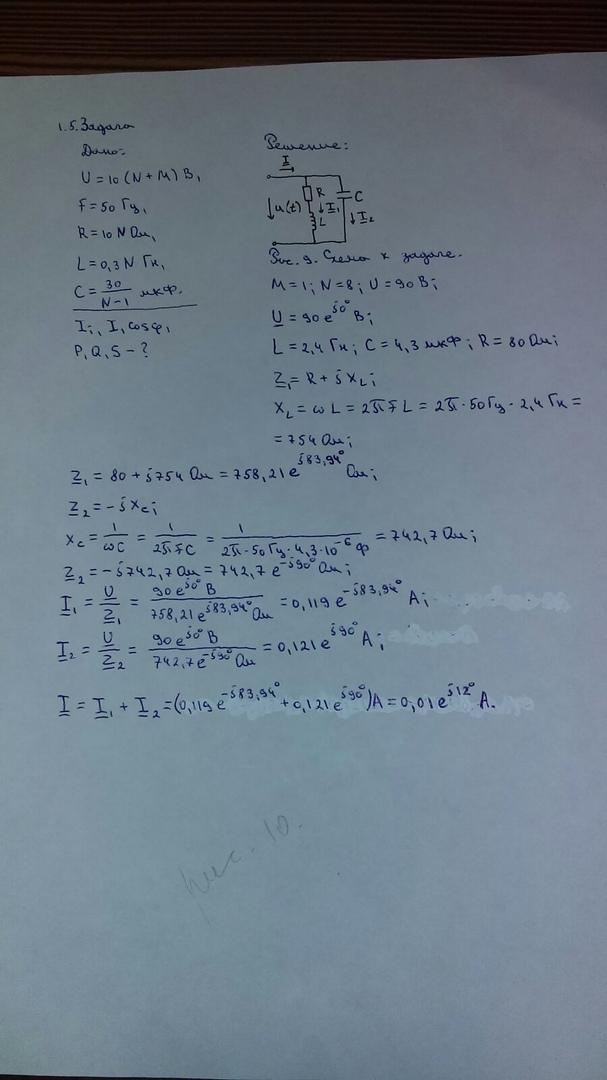 1.5. Задача
Дано:
U = 10 (N + M) В,
F = 50 Гц,
R = 10 N Ом,
L = 0,3 N Гн,
C = 30/(N-1) мкФ.
I₁, I, cosφ,
P, Q, S - ?
Решение:
I
R
C
u(t)
I₁
L
I₂
Рис. 9. Схема к задаче.
M = 1; N = 8; U = 90 В;
U = 90 e^j0° В;
L = 2,4 Гн; C = 4,3 мкФ; R = 80 Ом;
Z₁ = R + jX_L;
X_L = ωL = 2πFL = 2π·50 Гц · 2,4 Гн =
= 754 Ом;
Z₁ = 80 + j754 Ом = 758,21 e^j83,94° Ом;
Z₂ = -jX_c;
X_c = 1/ωC = 1/2πFC = 1/(2π·50 Гц·4,3·10⁻⁶ Ф) = 742,7 Ом;
Z₂ = -j742,7 Ом = 742,7 e^-j90° Ом;
I₁ = U/Z₁ = 90 e^j0° В/758,21 e^j83,94° Ом = 0,119 e^-j83,94° А;
I₂ = U/Z₂ = 90 e^j0° В/742,7 e^-j90° Ом = 0,121 e^j90° А;
I = I₁ + I₂ = (0,119 e^-j83,94° + 0,121 e^j90°) А = 0,01 e^j12° А.
рис. 10.